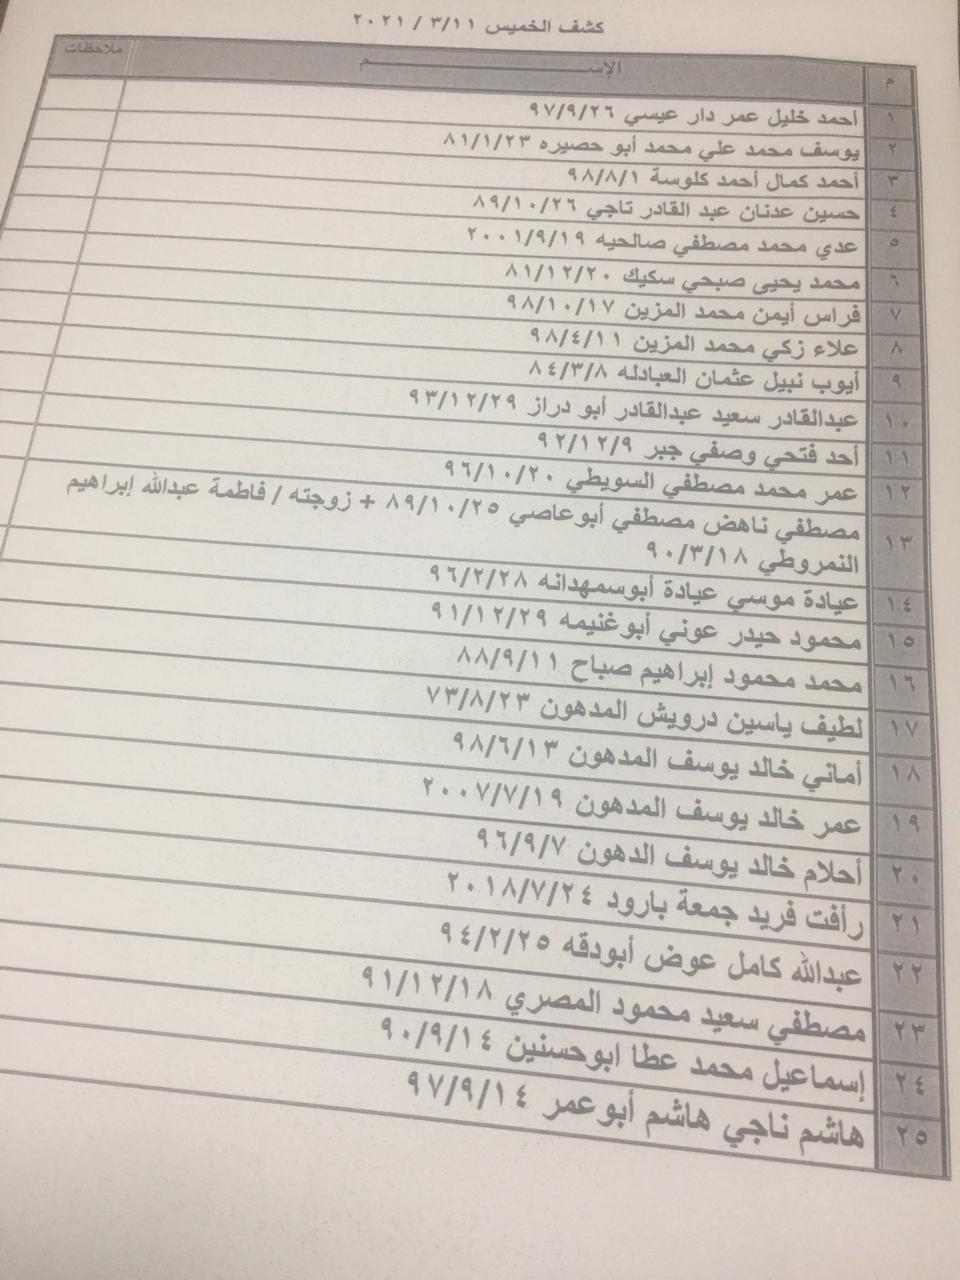 كشف الخميس ٣/١١ / ٢٠٢١
م الإســـــــــــــــــــم ملاحظات
١ أحمد خليل عمر دار عيسي ٩٧/٩/٢٦
٢ يوسف محمد علي محمد أبو حصيره ٨١/١/٢٣
٣ أحمد كمال أحمد كلوسة ٩٨/٨/١
٤ حسين عدنان عبد القادر تاجي ٨٩/١٠/٢٦
٥ عدي محمد مصطفي صالحيه ٢٠٠١/٩/١٩
٦ محمد يحيى صبحي سكيك ٨١/١٢/٢٠
٧ فراس أيمن محمد المزين ٩٨/١٠/١٧
٨ علاء زكي محمد المزين ٩٨/٤/١١
٩ أيوب نبيل عثمان العبادله ٨٤/٣/٨
١٠ عبدالقادر سعيد عبدالقادر أبو دراز ٩٣/١٢/٢٩
١١ أحد فتحي وصفي جبر ٩٢/١٢/٩
١٢ عمر محمد مصطفي السويطي ٩٦/١٠/٢٠
١٣ مصطفي ناهض مصطفي أبوعاصي ٨٩/١٠/٢٥ + زوجته / فاطمة عبدالله إبراهيم
النمروطي ٩٠/٣/١٨
١٤ عيادة موسي عيادة أبوسمهدانه ٩٦/٢/٢٨
١٥ محمود حيدر عوني أبوغنيمه ٩١/١٢/٢٩
١٦ محمد محمود إبراهيم صباح ٨٨/٩/١١
١٧ لطيف ياسين درويش المدهون ٧٣/٨/٢٣
١٨ أماني خالد يوسف المدهون ٩٨/٦/١٣
١٩ عمر خالد يوسف المدهون ٢٠٠٧/٧/١٩
٢٠ أحلام خالد يوسف الدهون ٩٦/٩/٧
٢١ رأفت فريد جمعة بارود ٢٠١٨/٧/٢٤
٢٢ عبدالله كامل عوض أبودقه ٩٤/٢/٢٥
٢٣ مصطفي سعيد محمود المصري ٩١/١٢/١٨
٢٤ إسماعيل محمد عطا ابوحسنين ٩٠/٩/١٤
٢٥ هاشم ناجي هاشم أبوعمر ٩٧/٩/١٤